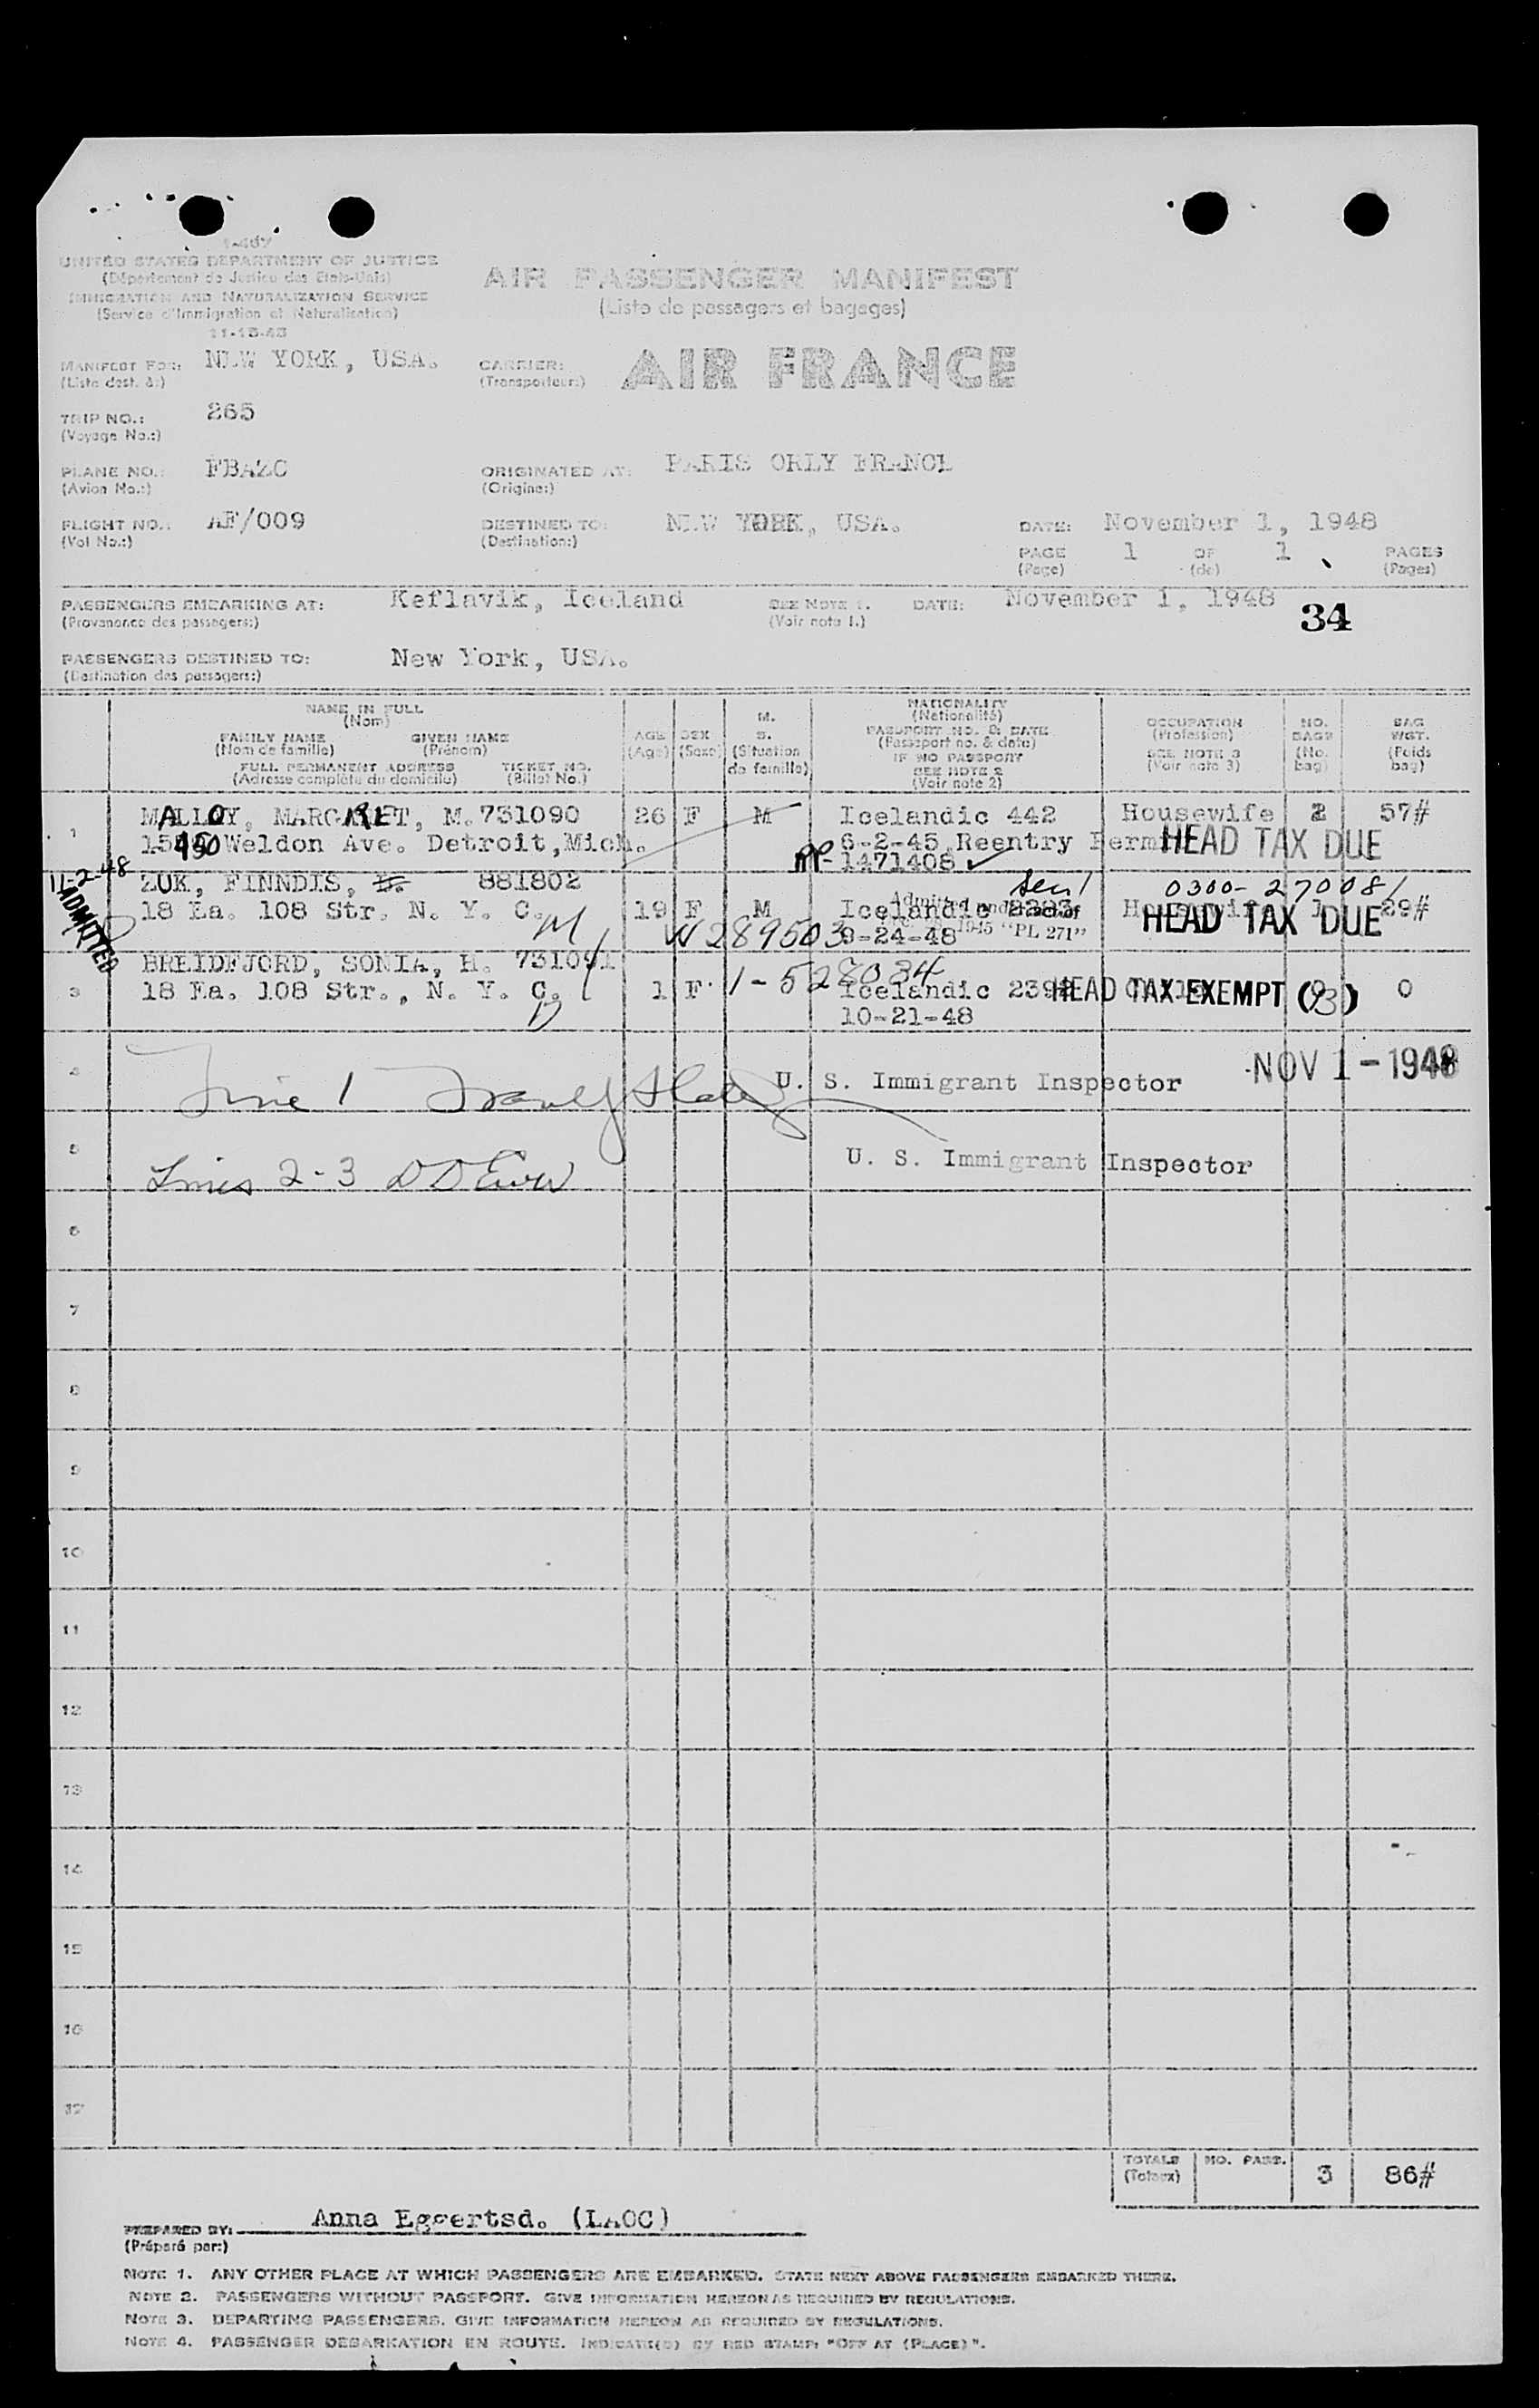 I-467
UNITED STATES DEPARTMENT OF JUSTICE
(Département de Justice des Etats-Unis)
IMMIGRATION AND NATURALIZATION SERVICE
(Service d'Immigration et Naturalisation)
11-15-43
AIR PASSENGER MANIFEST
(Liste de passagers et bagages)
MANIFEST FOR: NEW YORK, USA.
(Liste dest. à:)
CARRIER: AIR FRANCE
(Transporteur:)
TRIP NO.: 265
(Voyage No.:)
PLANE NO.: FBAZC
(Avion No.:)
ORIGINATED AT: PARIS ORLY FRANCE
(Origine:)
FLIGHT NO.: AF/009
(Vol No.:)
DESTINED TO: NEW YORK, USA.
(Destination:)
DATE: November 1, 1948
PAGE 1 OF 1 PAGES
(Page) (de) (Pages)
PASSENGERS EMBARKING AT: Keflavik, Iceland
(Provenance des passagers:)
SEE NOTE 1.
(Voir note 1.)
DATE: November 1, 1948
34
PASSENGERS DESTINED TO: New York, USA.
(Destination des passagers:)
NAME IN FULL
(Nom)
FAMILY NAME GIVEN NAME
(Nom de famille) (Prénom)
FULL PERMANENT ADDRESS TICKET NO.
(Adresse complète du domicile) (Billet No.)
AGE
(Age)
SEX
(Sexe)
M.
S.
(Situation
de famille)
NATIONALITY
(Nationalité)
PASSPORT NO. & DATE
(Passeport no. & date)
IF NO PASSPORT
SEE NOTE 2
(Voir note 2)
OCCUPATION
(Profession)
SEE NOTE 3
(Voir note 3)
NO.
BAGS
(No.
bag)
BAG
WGT.
(Poids
bag)
1 MALLOY, MARGARET, M. 731090 26 F M Icelandic 442 Housewife 2 57#
Weldon Ave. Detroit, Mich. 6-2-45, Reentry Permit
RP-1471408 ✓
HEAD TAX DUE
11-2-48
ADMITTED
ZUK, FINNDIS, 881802
Sen 1
0300-27008/
18 Ea. 108 Str. N. Y. C. 19 F M Icelandic Housewife 1 29#
9-24-48
Admitted under act of
1945 "PL 271"
HEAD TAX DUE
M
W289503
BREIDFJORD, SONIA, H. 731091
1-528034
3 18 Ea. 108 Str., N. Y. C. 1 F Icelandic 0 0
10-21-48
HEAD TAX EXEMPT (93)
4 Line 1
U. S. Immigrant Inspector
NOV 1-1948
5 Lines 2-3
U. S. Immigrant Inspector
6
7
8
9
10
11
12
13
14
15
16
17
TOTALS NO. PASS. 3 86#
(Totaux)
PREPARED BY: Anna Eggertsd. (LAOC)
(Préparé par:)
NOTE 1. ANY OTHER PLACE AT WHICH PASSENGERS ARE EMBARKED. STATE NEXT ABOVE PASSENGERS EMBARKED THERE.
NOTE 2. PASSENGERS WITHOUT PASSPORT. GIVE INFORMATION HEREON AS REQUIRED BY REGULATIONS.
NOTE 3. DEPARTING PASSENGERS. GIVE INFORMATION HEREON AS REQUIRED BY REGULATIONS.
NOTE 4. PASSENGER DEBARKATION EN ROUTE. INDICATE(D) BY RED STAMP: "OFF AT (PLACE)".